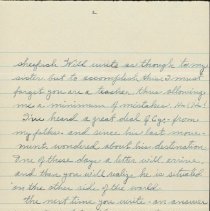 2
sheepish. Will write as though to my
sister, but to accomplish this I must
forget you are a teacher, thus allowing
me a minimum of mistakes. Ha! Ha!
I've heard a great deal of from
my folks and since his last move-
ment, wondered about his destination.
One of these days a letter will arrive
and then you will realize he is situated
on the other side of the world.
The next time you write an answer